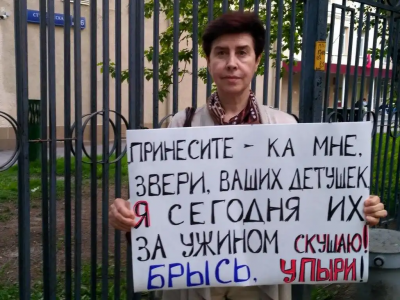 ПРИНЕСИТЕ - КА МНЕ,
ЗВЕРИ, ВАШИХ ДЕТУШЕК
Я СЕГОДНЯ ИХ
ЗА УЖИНОМ СКУШАЮ!
БРЫСЬ, УПЫРИ!